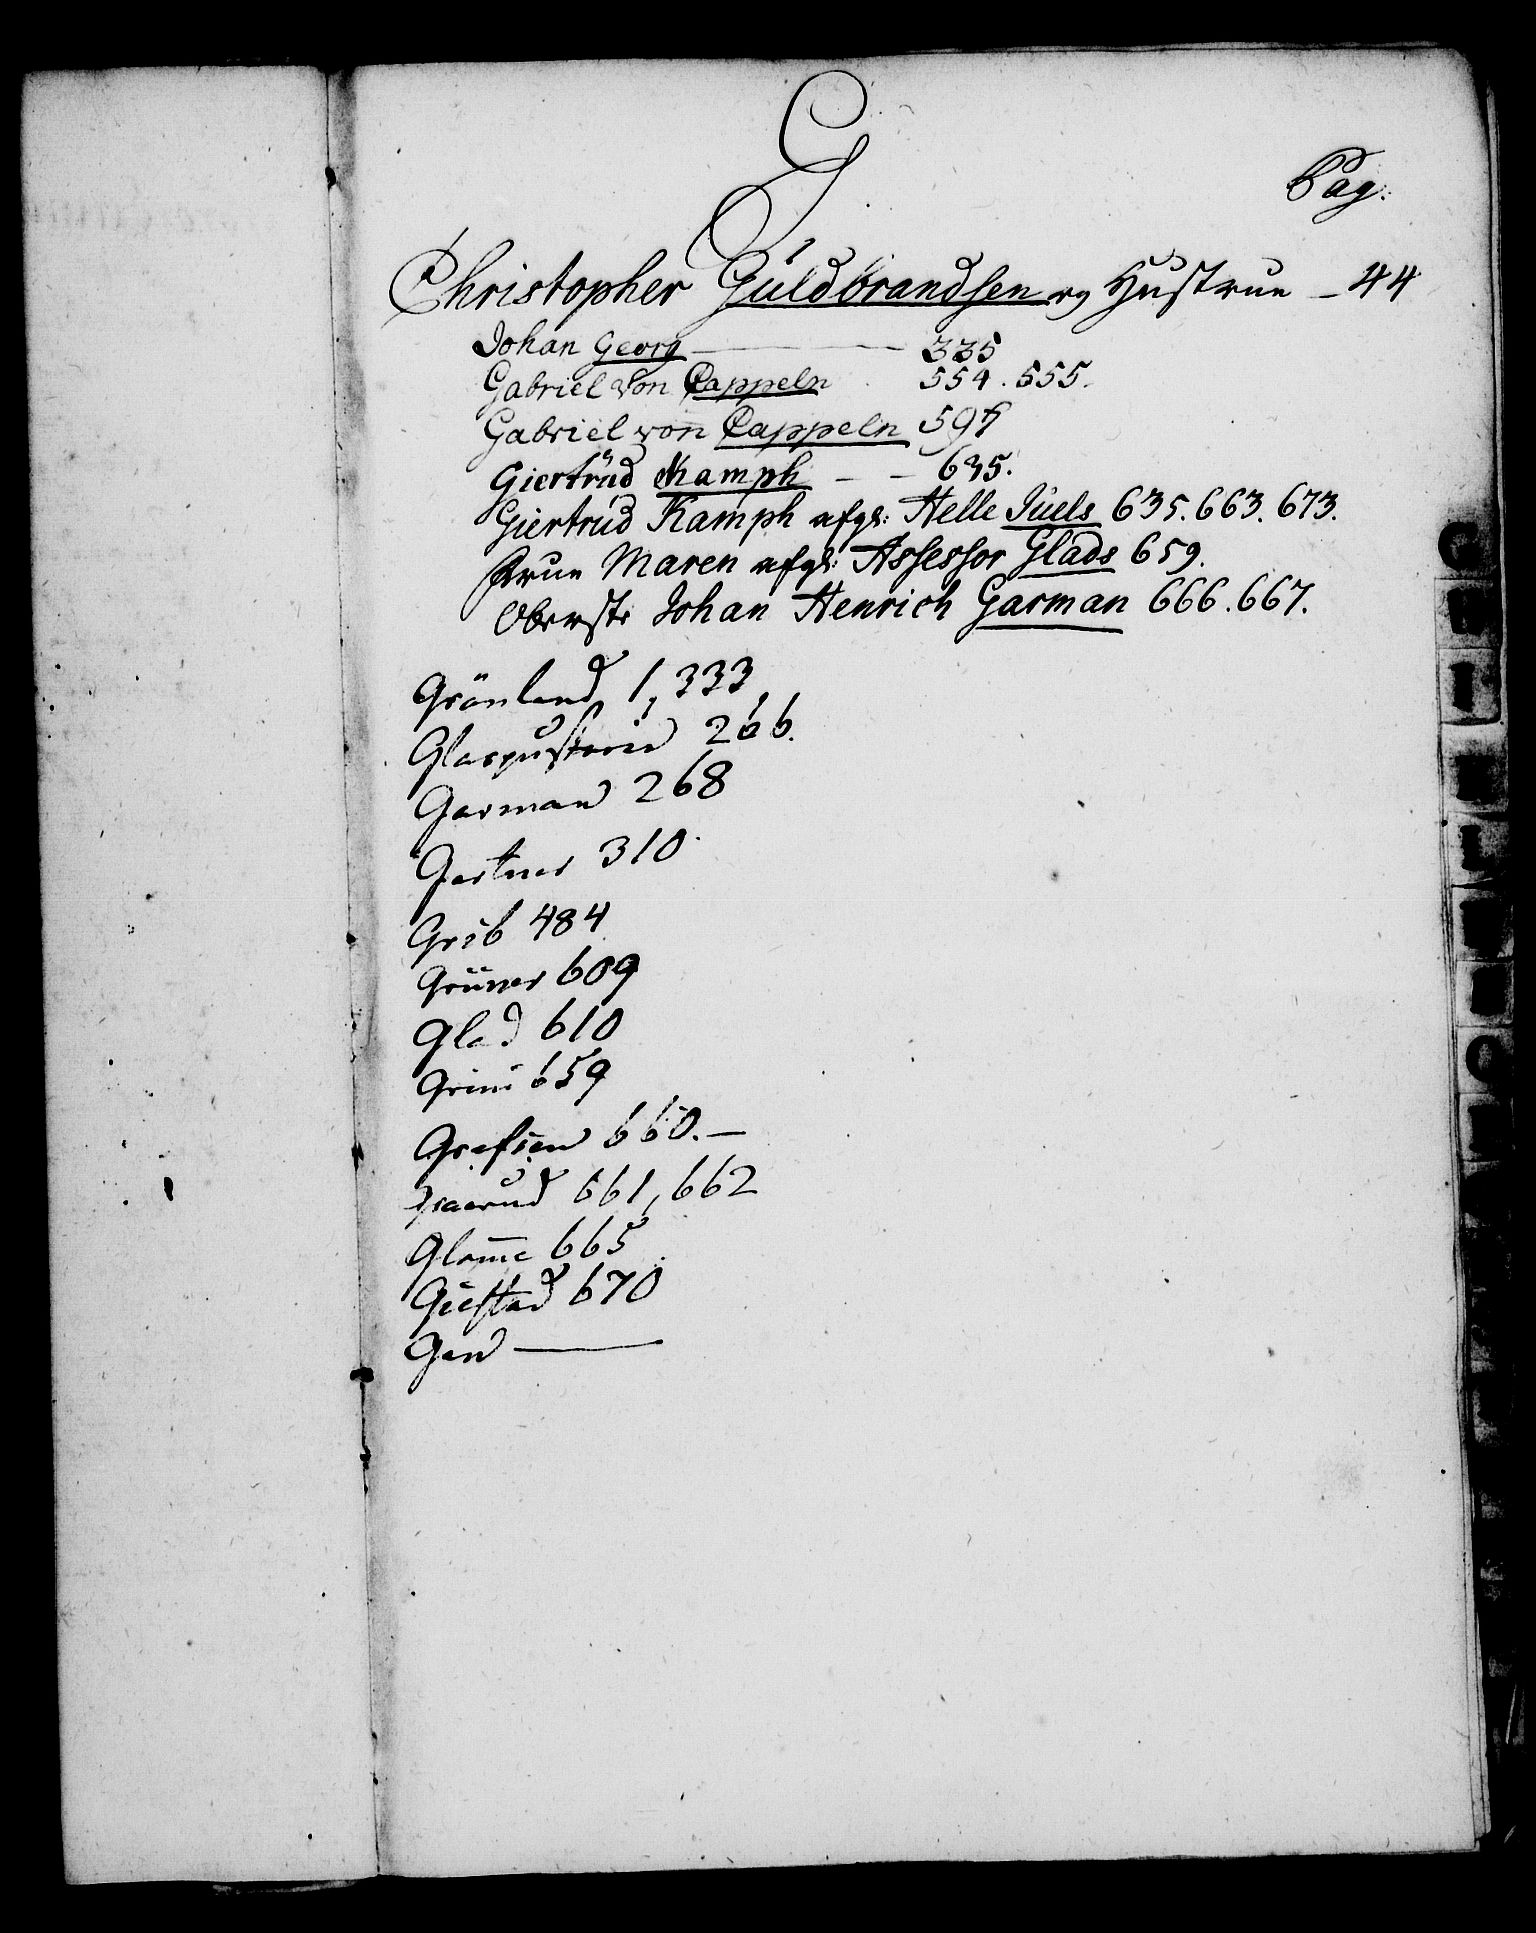 G
Pag:
Christopher Güldbrandsen og Hustrue – 44
Johan Georg — 335
Gabriel von Cappeln 554. 555.
Gabriel von Cappeln 597
Giertrüd Kamph – – 635.
Giertrüd Kamph afgl: Helle Jüels 635. 663. 673.
Frue Maren afgl: Assessor Glads 659.
Oberste Johan Henrich Garman 666. 667.
Grönland 1, 333
Glaspusterie 266.
Garman 268
Gartner 310
Grib 484
Grüner 609
Glad 610
Grini 659
Grefsen 660. –
661, 662
Glom̄e 665
Giestad 670
G
I
L
O